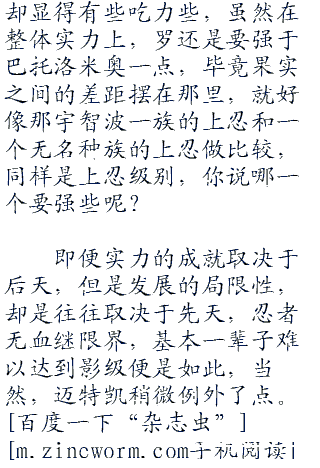 却显得有些吃力些，虽然在
整体实力上，罗还是要强于
巴托洛米奥一点，毕竟果实
之间的差距摆在那里，就好
像那宇智波一族的上忍和一
个无名种族的上忍做比较，
同样是上忍级别，你说哪一
个要强些呢？
即便实力的成就取决于
后天，但是发展的局限性，
却是往往取决于先天，忍者
无血继限界，基本一辈子难
以达到影级便是如此，当
然，迈特凯稍微例外了点。
[百度一下“杂志虫”]
[m.zincworm.com手机阅读]